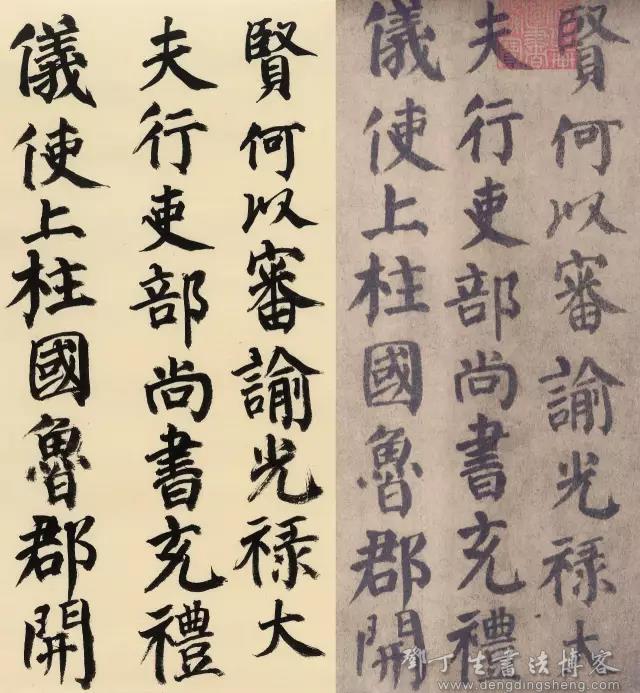 賢何以審諭光禄大
夫行吏部尚書充禮
儀使上柱國魯郡開
賢何以審諭光禄大
夫行吏部尚書充禮
儀使上柱國魯郡開
鄧丁生書法博客
www.dengdingsheng.com